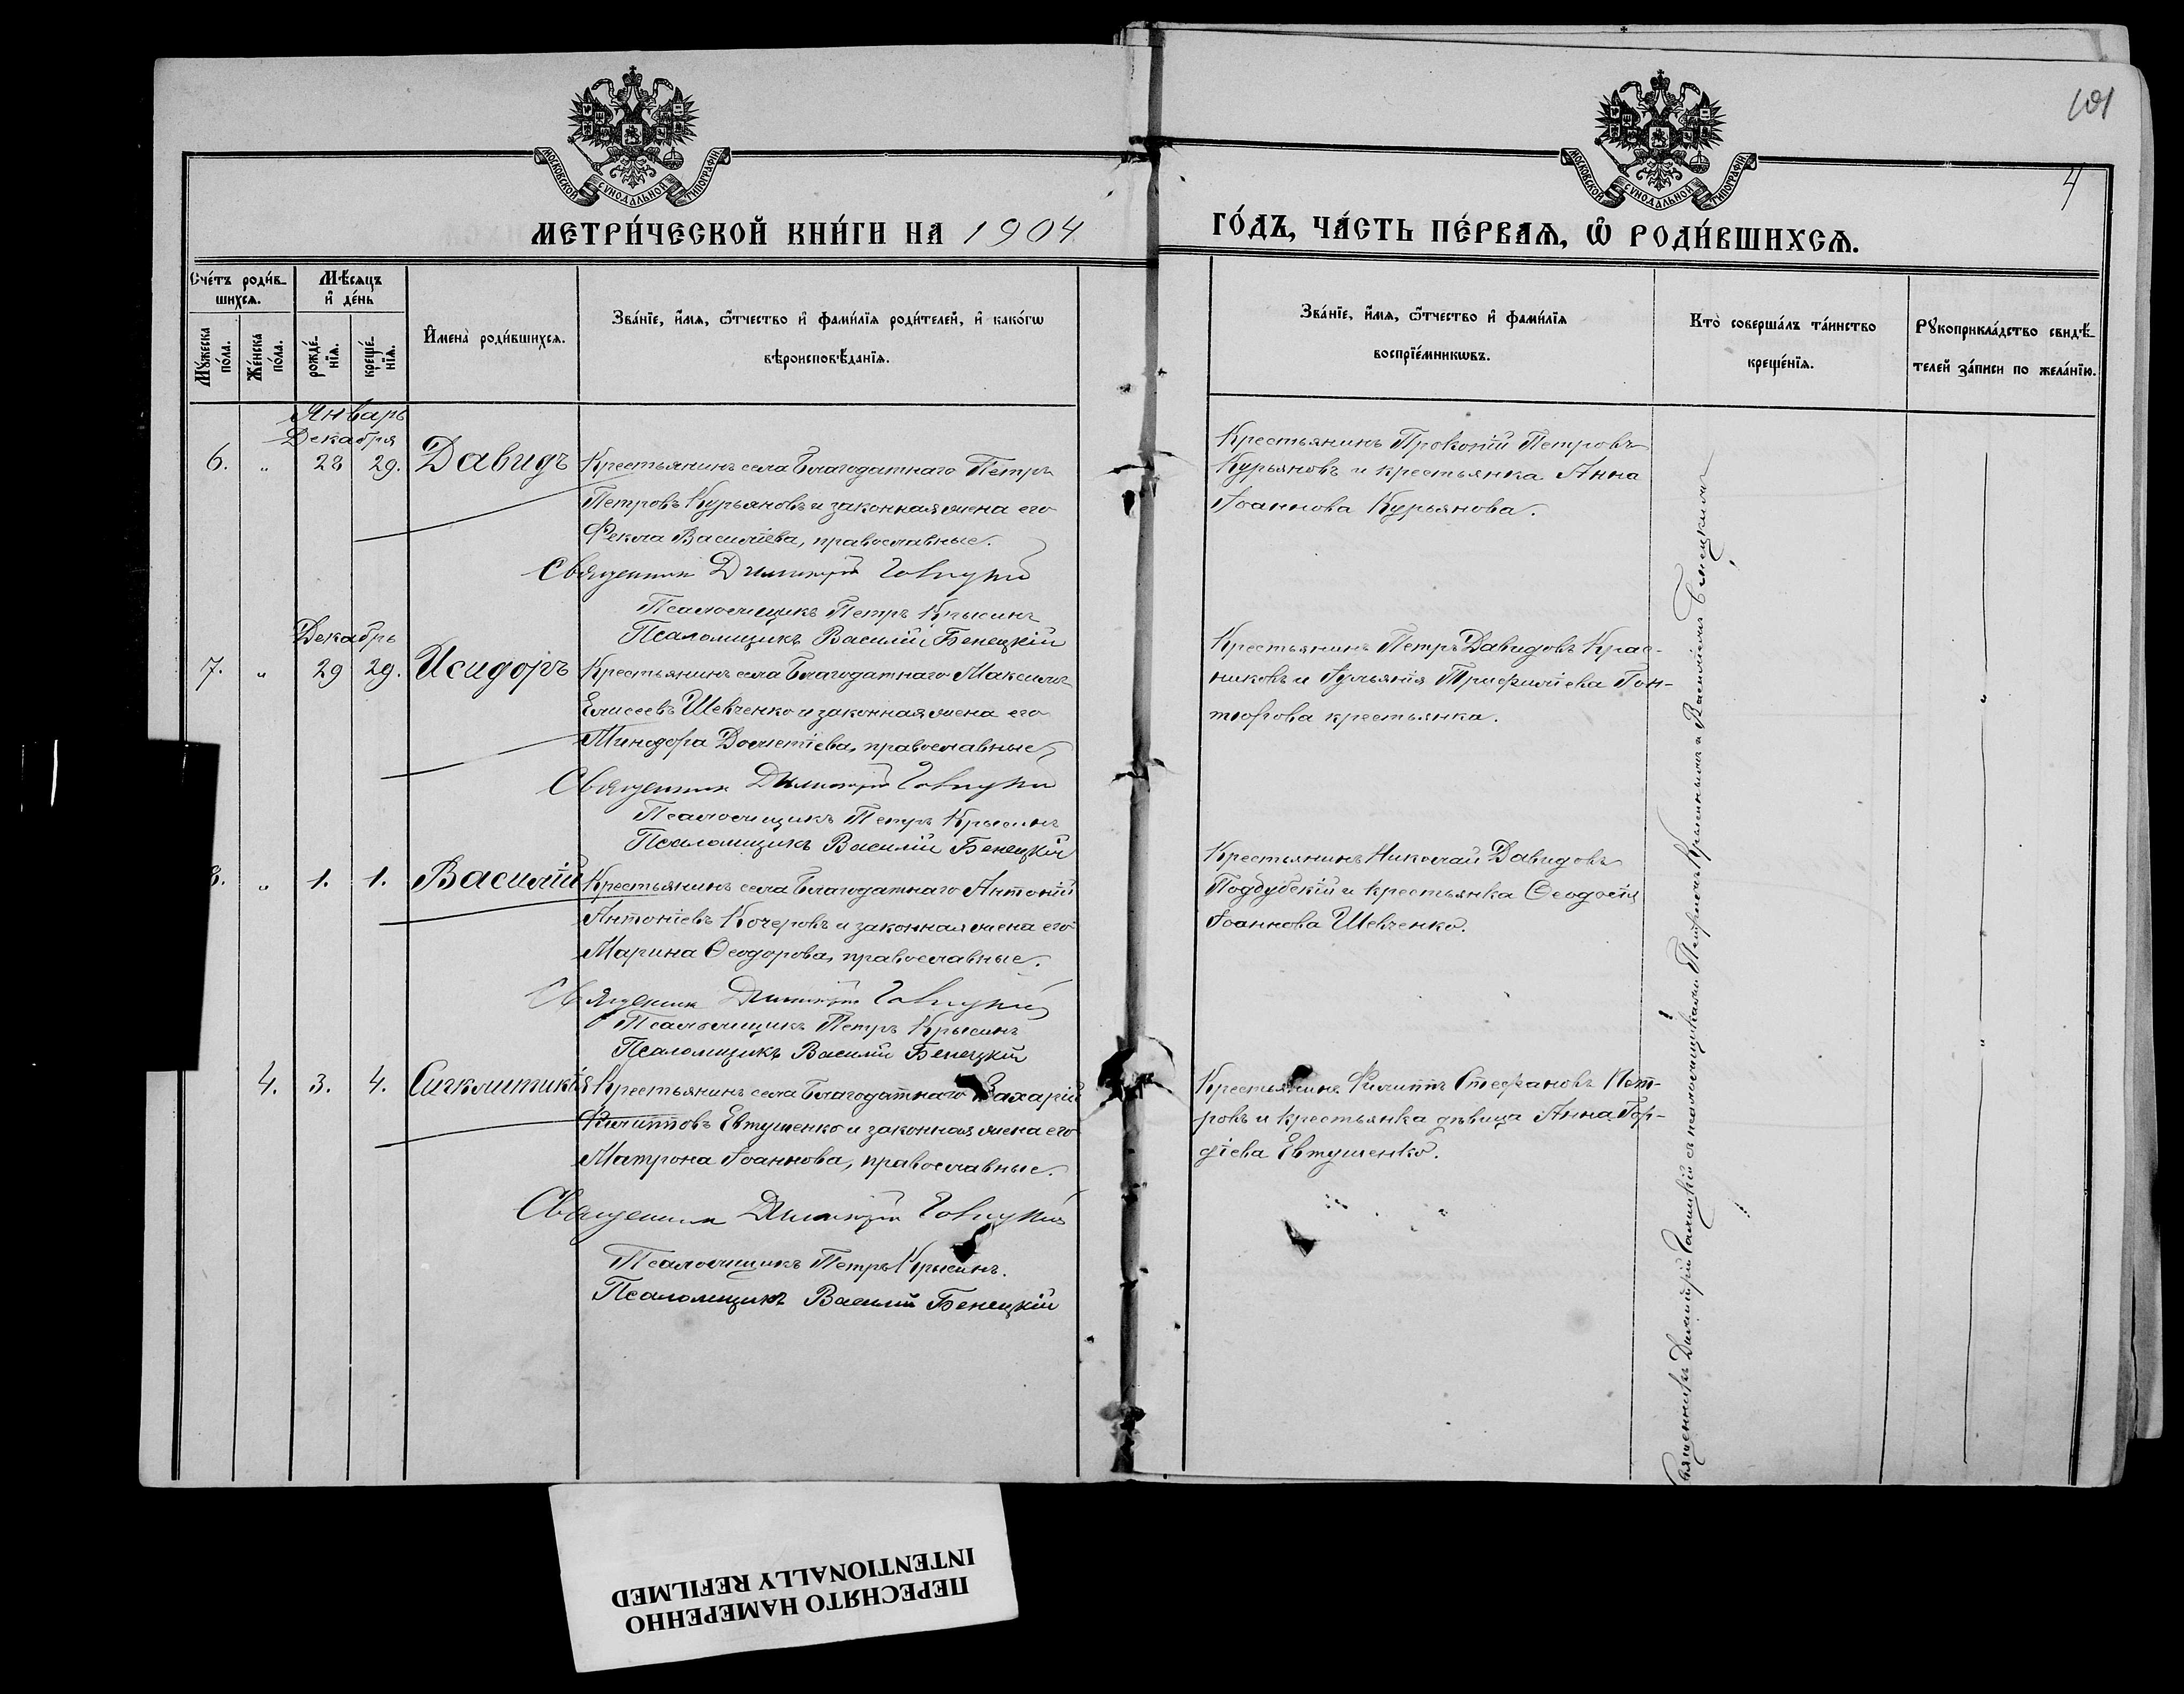 101
4
МОСКОВСКОЙ СУНОДАЛЬНОЙ ТИПОГРАФІИ
МОСКОВСКОЙ СУНОДАЛЬНОЙ ТИПОГРАФІИ
МЕТРИ́ЧЕСКОЙ КНИ́ГИ НА 1904
ГО́ДЪ, ЧА́СТЬ ПЕ́РВАѦ, Ѡ҆ РОДИ́ВШИХСѦ.
Сче́тъ роди́вшихсѧ.
Мꙋ́жеска по́ла.
Же́нска по́ла.
Мѣ́сѧцъ и҆ де́нь
рожде́нїѧ.
креще́нїѧ.
И҆мена̀ роди́вшихсѧ.
Зва́нїе, и҆́мѧ, ѻ҆́тчество и҆ фами́лїѧ роди́телей, и҆ како́гѡ
вѣроисповѣ́данїѧ.
Зва́нїе, и҆́мѧ, ѻ҆́тчество и҆ фами́лїѧ
воспрїе́мникѡвъ.
Кто̀ соверша́лъ та́инство
креще́нїѧ.
Рꙋкоприкла́дство свидѣ́-
телей за́писи по жела́нїю.
Январь
Декабря
6. " 28 29. Давидъ
Крестьянинъ села Благодатнаго Петръ
Петровъ Курьяновъ и законная жена его
Фекла Василіева, православные.
Священник Димитрій
Псаломщикъ Петръ Крысинъ
Псаломщикъ Василій Бенецкій
Крестьянинъ Прокопій Петровъ
Курьяновъ и крестьянка Анна
Іоаннова Курьянова.
Декабрь
7. " 29 29. Исидоръ
Крестьянинъ села Благодатнаго Максимъ
Елисеевъ Шевченко и законная жена его
Минодора православные,
Священник Димитрій
Псаломщикъ Петръ Крысинъ
Псаломщикъ Василій Бенецкій
Крестьянинъ Петръ Давидовъ Крас-
никовъ и Трифиліева Гон-
тюрова крестьянка.
8. " 1. 1. Василій
Крестьянинъ села Благодатнаго Антоній
Антоніевъ Кочеровъ и законная жена его
Марина Ѳеодорова, православные.
Священник Димитрій
Псаломщикъ Петръ Крысинъ
Псаломщикъ Василій Бенецкій
Крестьянинъ Николай Давидовъ
Поддубскій и крестьянка Ѳеодосія
Іоаннова Шевченко.
4. 3. 4. Сигклитикія
Крестьянинъ села Благодатнаго Захарій
Филипповъ Евтушенко и законная жена его
Матрона Іоаннова, православные.
Священник Димитрій
Псаломщикъ Петръ Крысинъ.
Псаломщикъ Василій Бенецкій
Крестьянинъ Филиппъ Стефановъ Пет-
ровъ и крестьянка дѣвица Анна Гор-
діева Евтушенко.
Священникъ Димитрій съ псаломщиками Петромъ Крысинымъ и Василіемъ Бенецкимъ
ПЕРЕСНЯТО НАМЕРЕННО
INTENTIONALLY REFILMED